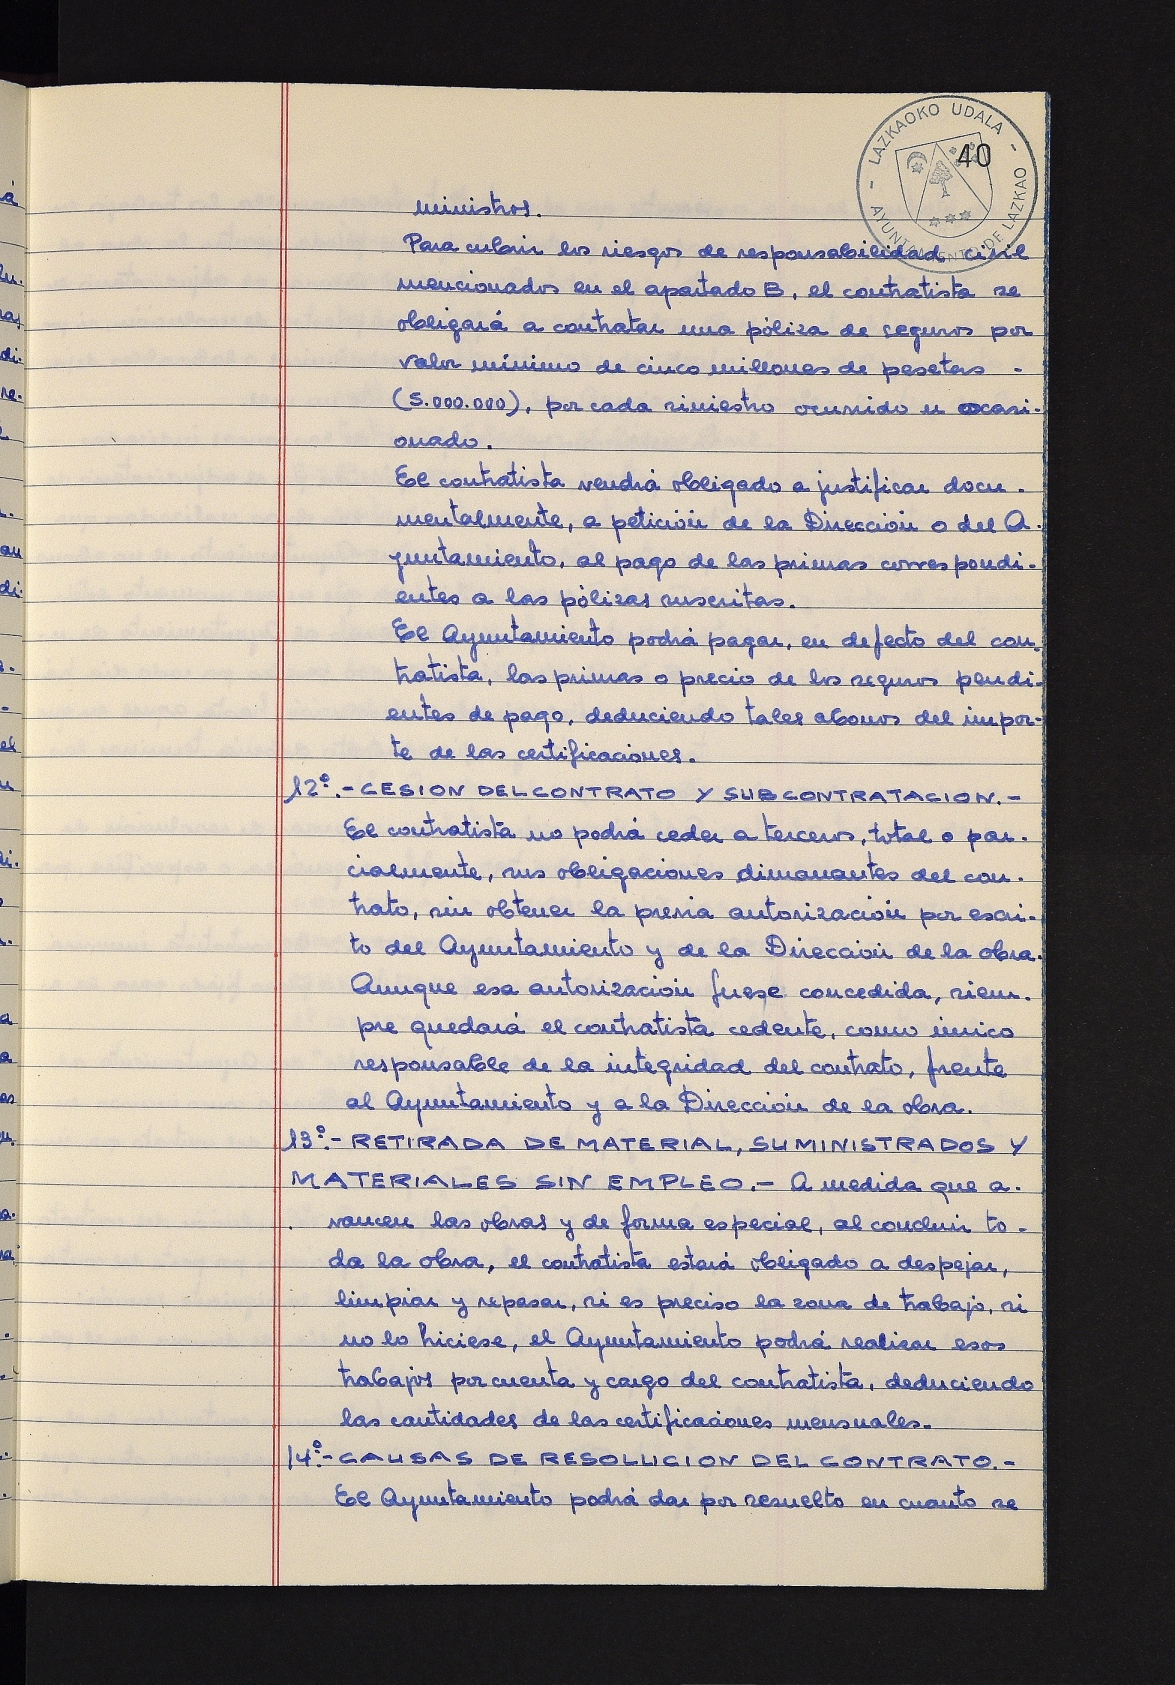 LAZKAOKO UDALA
AYUNTAMIENTO DE LAZKAO
40
ministros.
Para cubrir los riesgos de responsabilidad civil
mencionados en el apartado B, el contratista se
obligará a contratar una póliza de seguros por
valor mínimo de cinco millones de pesetas -
(5.000.000), por cada siniestro ocurrido u ocasi-
onado.
El contratista vendrá obligado a justificar docu-
mentalmente, a petición de la Dirección o del A-
yuntamiento, al pago de las primas correspondi-
entes a las pólizas suscritas.
El Ayuntamiento podrá pagar, en defecto del con-
tratista, las primas o precio de los seguros pendi-
entes de pago, deduciendo tales abonos del impor-
te de las certificaciones.
12º.- CESION DEL CONTRATO Y SUBCONTRATACION.-
El contratista no podrá ceder a terceros, total o par-
cialmente, sus obligaciones dimanantes del con-
trato, sin obtener la previa autorización por escri-
to del Ayuntamiento y de la Dirección de la obra.
Aunque esa autorización fuese concedida, siem-
pre quedará el contratista cedente, como único
responsable de la integridad del contrato, frente
al Ayuntamiento y a la Dirección de la obra.
13º.- RETIRADA DE MATERIAL, SUMINISTRADOS Y
MATERIALES SIN EMPLEO.- A medida que a-
vancen las obras y de forma especial, al concluir to-
da la obra, el contratista estará obligado a despejar,
limpiar y repasar, si es preciso la zona de trabajo, si
no lo hiciese, el Ayuntamiento podrá realizar esos
trabajos por cuenta y cargo del contratista, deduciendo
las cantidades de las certificaciones mensuales.
14º.- CAUSAS DE RESOLUCION DEL CONTRATO.-
El Ayuntamiento podrá dar por resuelto en cuanto se